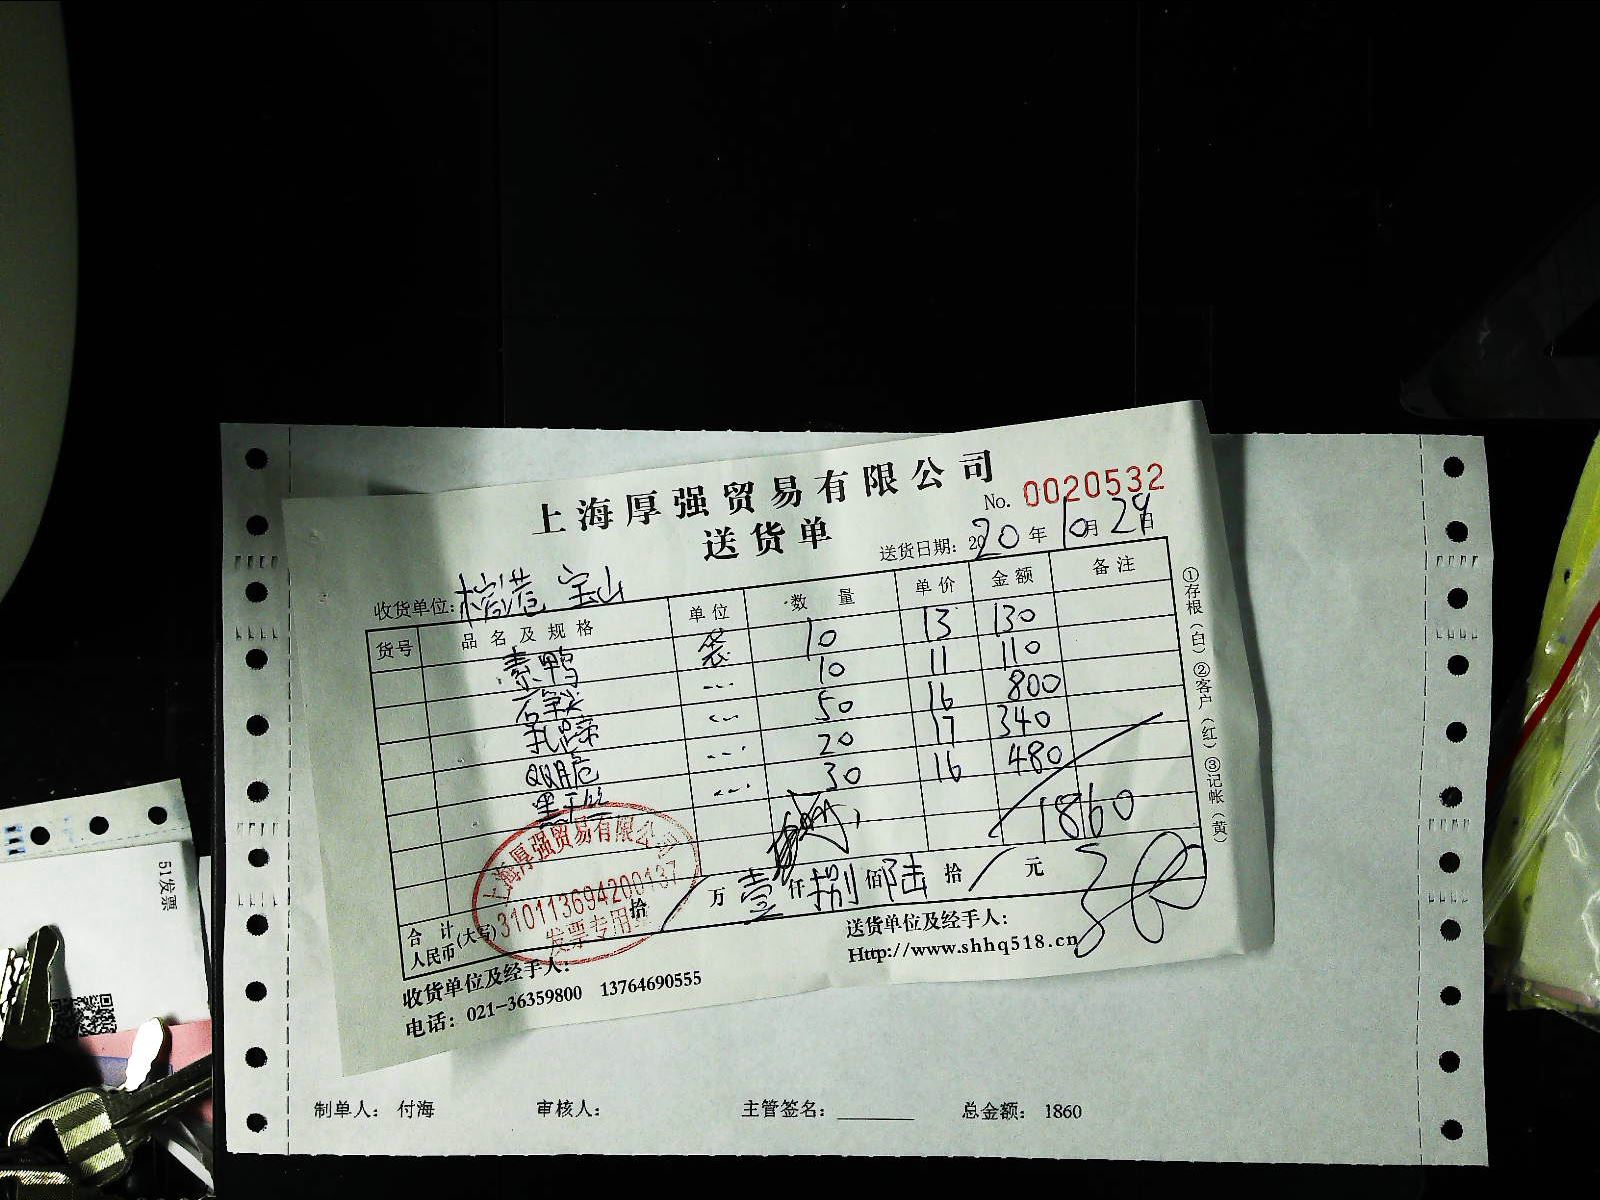 上海厚强贸易有限公司
送货单
No. 0020532
送货日期：2020年10月29日
收货单位： 宝山
货号 品名及规格 单位 数量 单价 金额 备注
素鸭 袋 10 13 130
10 11 110
乳蹄 50 16 800
QQ脆 20 17 340
黑千丝 30 16 480
1860
合计人民币(大写) 拾 万 壹 仟 捌 佰 陆 拾 元
上海厚强贸易有限公司
310113694200137
发票专用章
收货单位及经手人：
送货单位及经手人：
电话：021-36359800 13764690555
Http://www.shhq518.cn
①存根（白）②客户（红）③记帐（黄）
制单人： 付海 审核人： 主管签名： 总金额： 1860
51发票